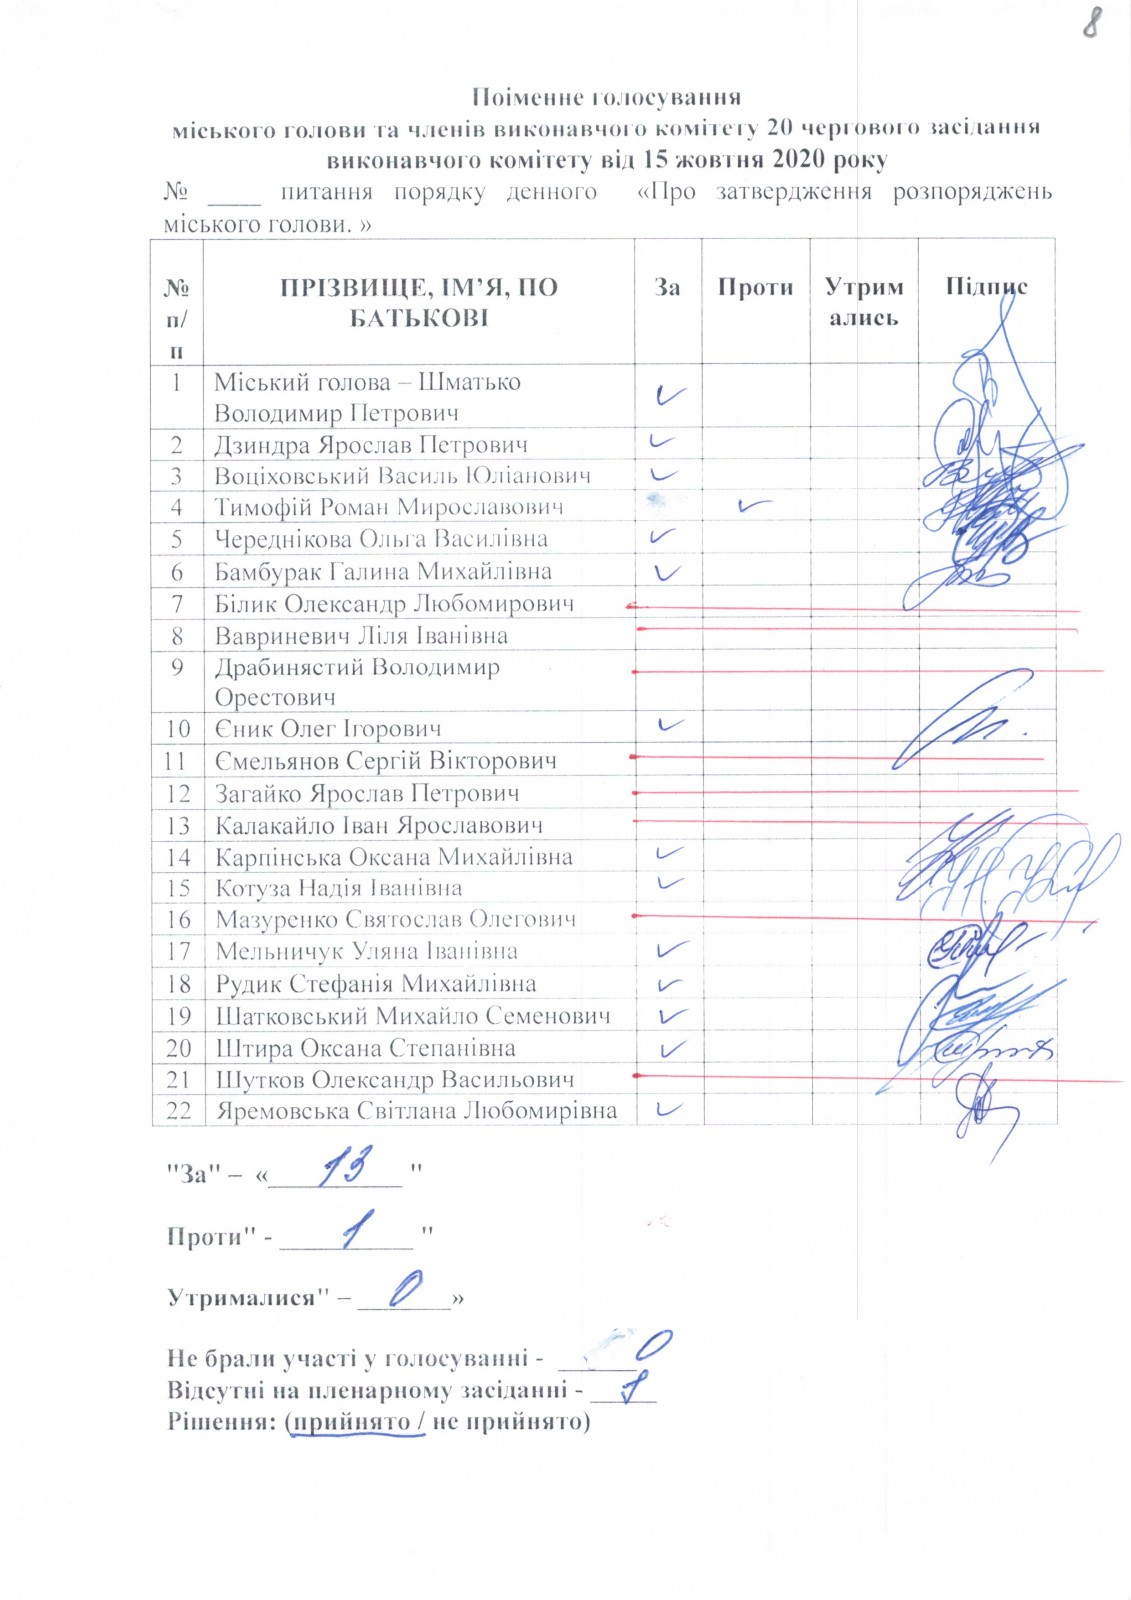 8
Поіменне голосування
міського голови та членів виконавчого комітету 20 чергового засідання
виконавчого комітету від 15 жовтня 2020 року
№ ____ питання порядку денного «Про затвердження розпоряджень
міського голови. »
№ п/п ПРІЗВИЩЕ, ІМ’Я, ПО БАТЬКОВІ За Проти Утримались Підпис
1 Міський голова – Шматько
Володимир Петрович ✓
2 Дзиндра Ярослав Петрович ✓
3 Воціховський Василь Юліанович ✓
4 Тимофій Роман Мирославович ✓
5 Череднікова Ольга Василівна ✓
6 Бамбурак Галина Михайлівна ✓
7 Білик Олександр Любомирович
8 Вавриневич Ліля Іванівна
9 Драбинястий Володимир
Орестович
10 Єник Олег Ігорович ✓
11 Ємельянов Сергій Вікторович
12 Загайко Ярослав Петрович
13 Калакайло Іван Ярославович
14 Карпінська Оксана Михайлівна ✓
15 Котуза Надія Іванівна ✓
16 Мазуренко Святослав Олегович
17 Мельничук Уляна Іванівна ✓
18 Рудик Стефанія Михайлівна ✓
19 Шатковський Михайло Семенович ✓
20 Штира Оксана Степанівна ✓
21 Шутков Олександр Васильович
22 Яремовська Світлана Любомирівна ✓
"За" – «13 "
Проти" - 1 "
Утрималися" – 0»
Не брали участі у голосуванні - 0
Відсутні на пленарному засіданні -
Рішення: (прийнято / не прийнято)